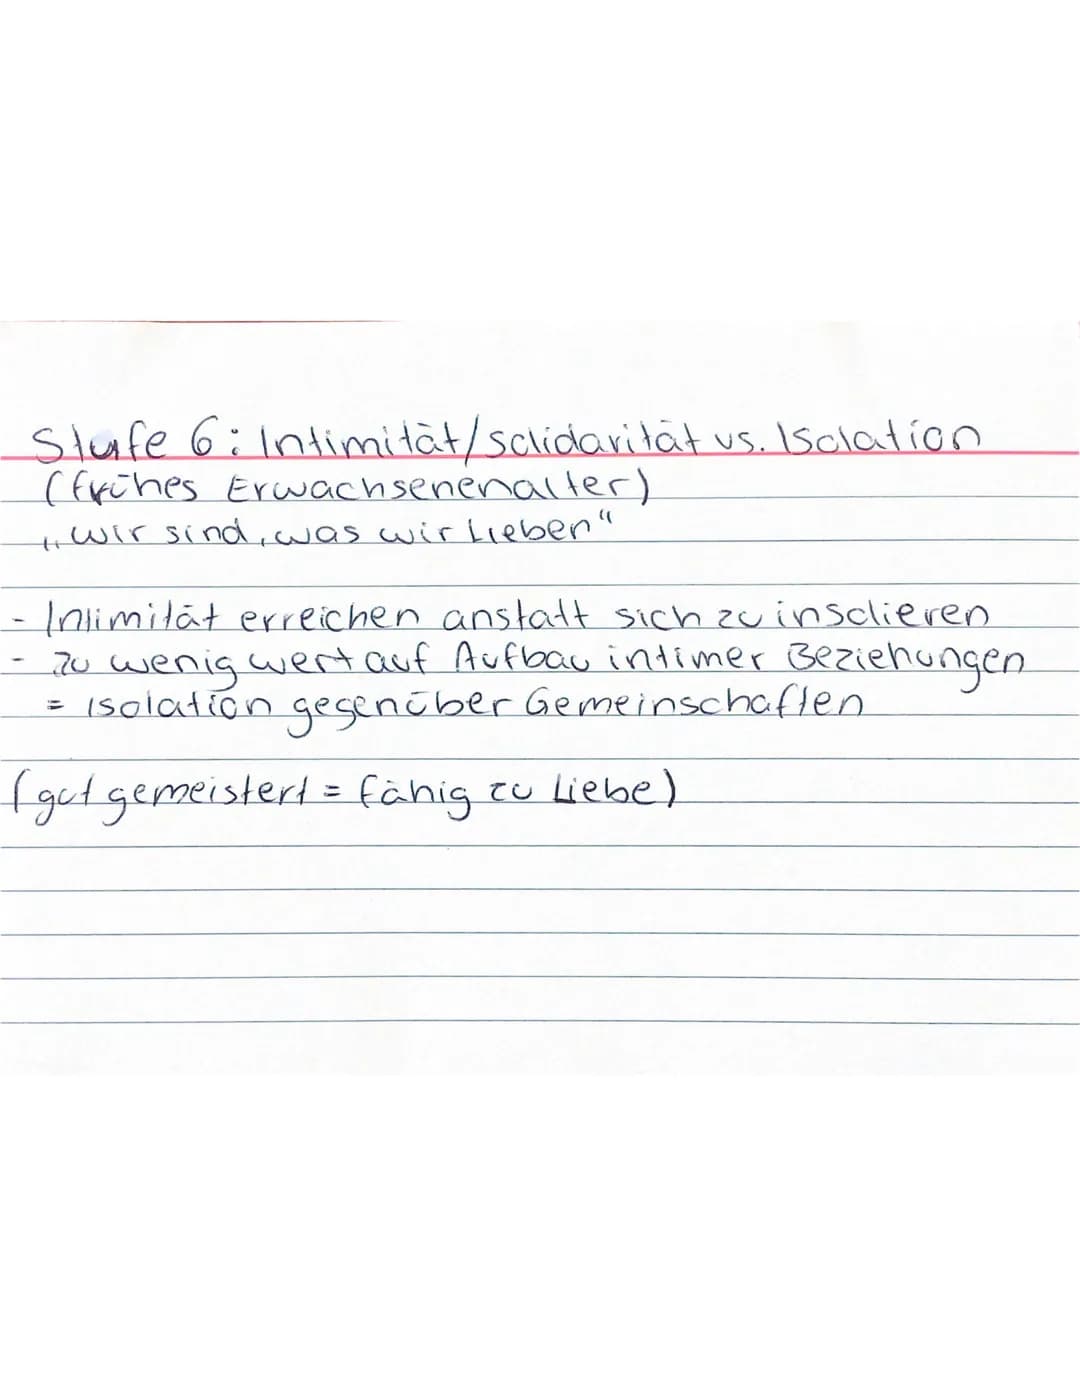 Stufe 6: Intimität/solidarität vs. Isolation
(frühes Erwachsenenalter)
„Wir sind, was wir Lieben“
- Intimität erreichen anstatt sich zu insolieren
- zu wenig wert auf Aufbau intimer Beziehungen
= Isolation gegenüber Gemeinschaften
(gut gemeistert = fähig zu Liebe)